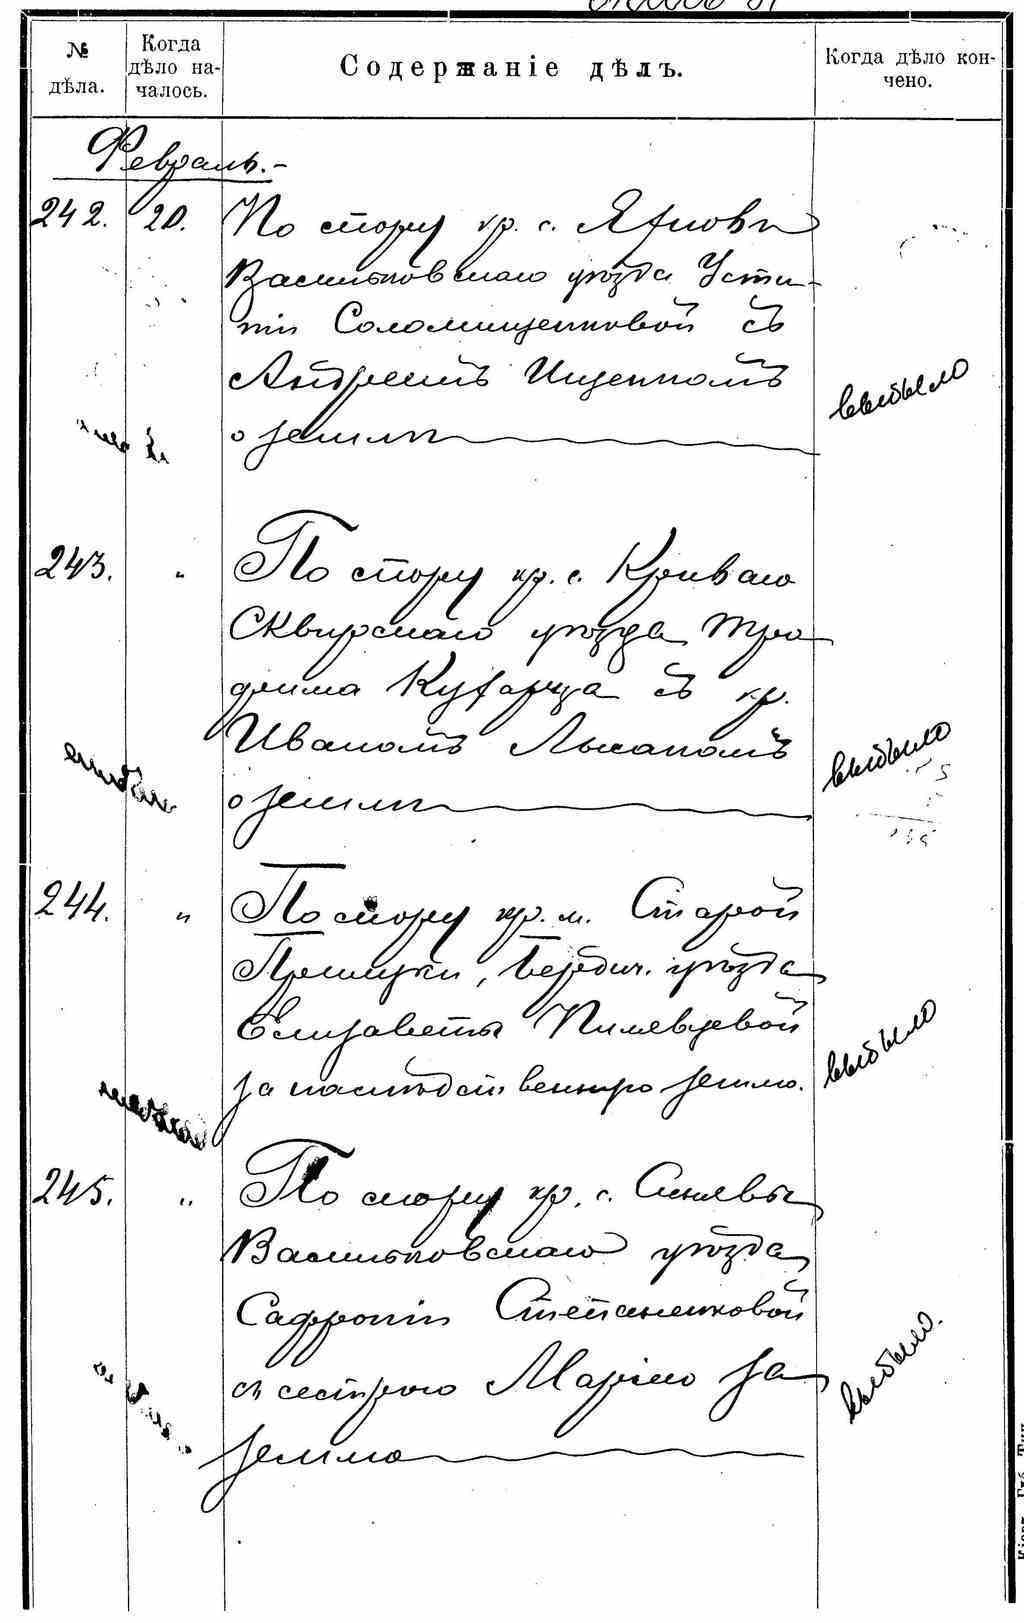 № дѣла.
Когда дѣло на-
чалось.
Содержаніе дѣлъ.
Когда дѣло кон-
чено.
Февраль.-
242. 20. По спору кр. с. Яхновки
Васильковскаго уѣзда Усти-
ніи Соломищенковой съ
Андреемъ Ищенкомъ
о землѣ
выбыло
243. " По спору кр. с. Криваго
Сквирскаго уѣзда Тро
фима Кухарца съ кр.
Иваномъ
о землѣ
выбыло
244. " По спору кр. м. Старой
Прилуки, Бердич. уѣзда
Елизаветы Пилявцевой
за наслѣдственную землю.
выбыло
245. " По спору кр. с. Синявы
Васильковскаго уѣзда
Сафроніи Степаненковой
съ сестрою Маріею за
землю
выбыло.